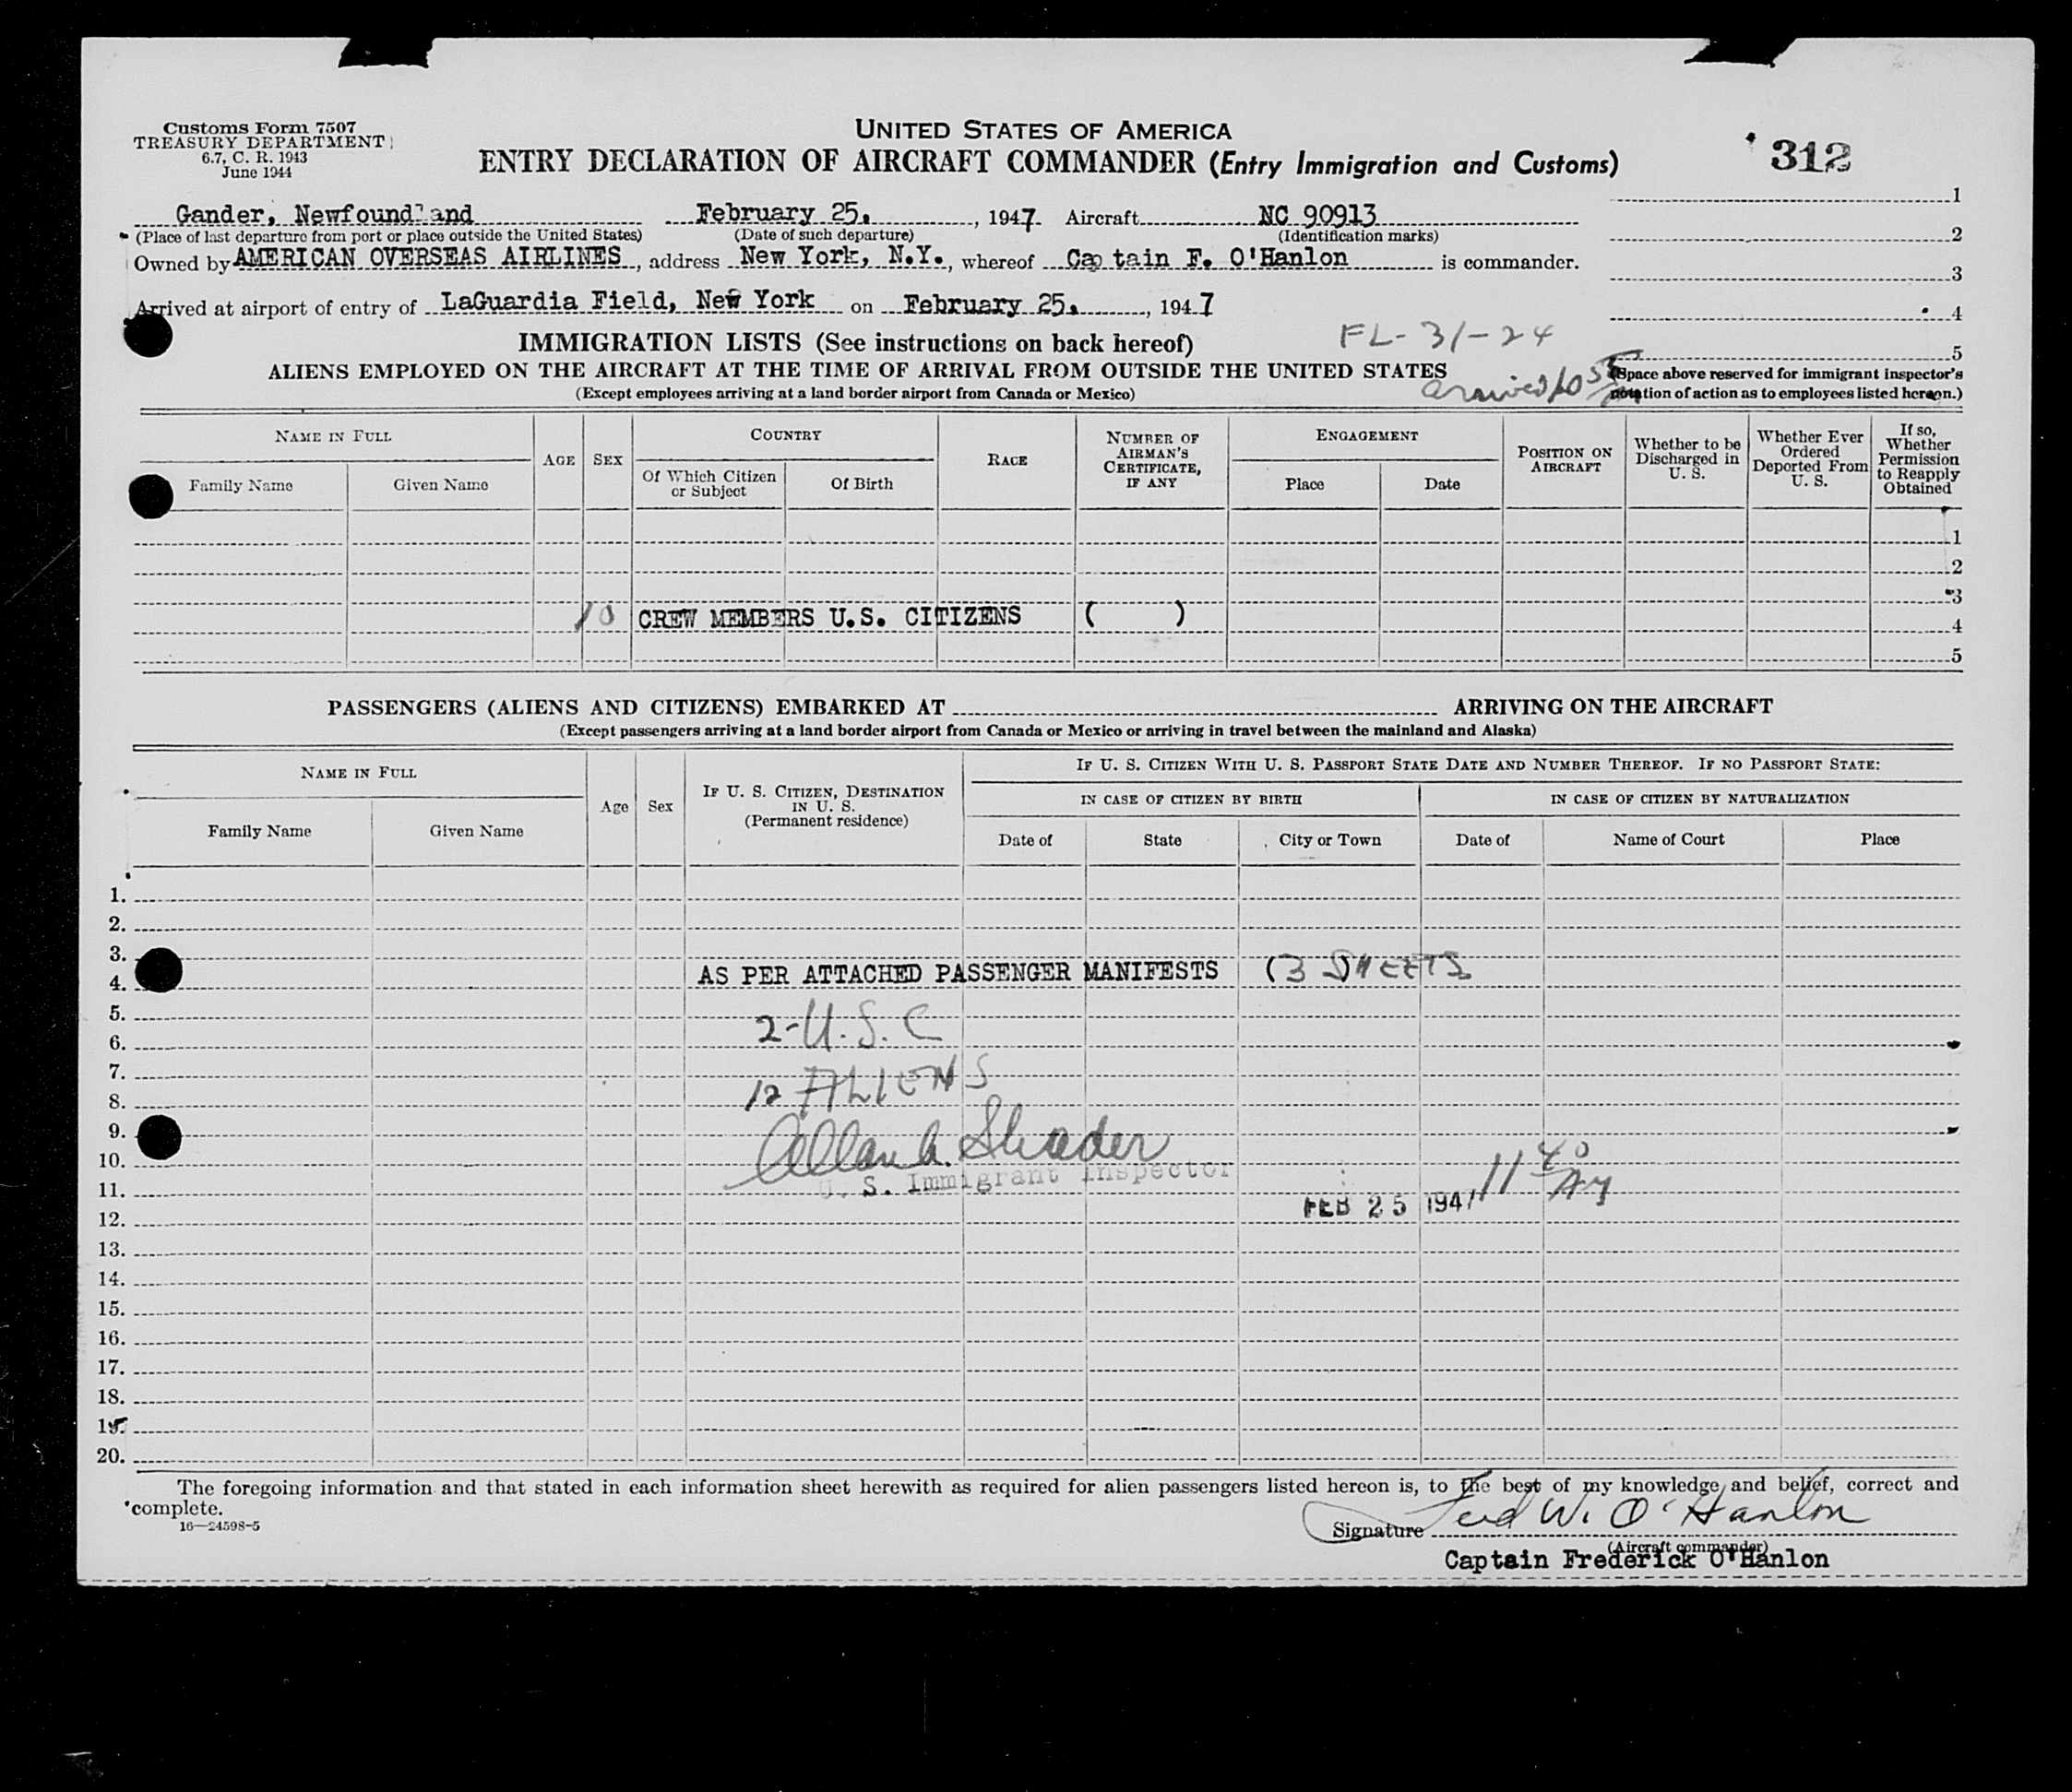 Customs Form 7507
TREASURY DEPARTMENT
6.7, C. R. 1943
June 1944
UNITED STATES OF AMERICA
ENTRY DECLARATION OF AIRCRAFT COMMANDER (Entry Immigration and Customs)
312
Gander, Newfoundland February 25, 1947 Aircraft NC 90913
(Place of last departure from port or place outside the United States) (Date of such departure) (Identification marks)
Owned by AMERICAN OVERSEAS AIRLINES, address New York, N.Y., whereof Cap tain F. O'Hanlon is commander.
Arrived at airport of entry of LaGuardia Field, New York on February 25, 1947
1
2
3
4
5
IMMIGRATION LISTS (See instructions on back hereof)
FL-31-24
ALIENS EMPLOYED ON THE AIRCRAFT AT THE TIME OF ARRIVAL FROM OUTSIDE THE UNITED STATES
(Except employees arriving at a land border airport from Canada or Mexico)
arrived
(Space above reserved for immigrant inspector's
notation of action as to employees listed hereon.)
NAME IN FULL
Family Name
Given Name
AGE
SEX
COUNTRY
Of Which Citizen
or Subject
Of Birth
RACE
NUMBER OF
AIRMAN'S
CERTIFICATE,
IF ANY
ENGAGEMENT
Place
Date
POSITION ON
AIRCRAFT
Whether to be
Discharged in
U. S.
Whether Ever
Ordered
Deported From
U. S.
If so,
Whether
Permission
to Reapply
Obtained
1
2
3
10 CREW MEMBERS U.S. CITIZENS ( )
4
5
PASSENGERS (ALIENS AND CITIZENS) EMBARKED AT ARRIVING ON THE AIRCRAFT
(Except passengers arriving at a land border airport from Canada or Mexico or arriving in travel between the mainland and Alaska)
NAME IN FULL
Family Name
Given Name
Age
Sex
IF U. S. CITIZEN, DESTINATION
IN U. S.
(Permanent residence)
IF U. S. CITIZEN WITH U. S. PASSPORT STATE DATE AND NUMBER THEREOF. IF NO PASSPORT STATE:
IN CASE OF CITIZEN BY BIRTH
IN CASE OF CITIZEN BY NATURALIZATION
Date of
State
City or Town
Date of
Name of Court
Place
1.
2.
3.
4. AS PER ATTACHED PASSENGER MANIFESTS (3 SHEETS
5.
6. 2-U.S.C
7.
8. 12 ALIENS
9.
10. Allan A. Shader
11. U. S. Immigrant Inspector
11 40 AM
12. FEB 25 1947
13.
14.
15.
16.
17.
18.
19.
20.
The foregoing information and that stated in each information sheet herewith as required for alien passengers listed hereon is, to the best of my knowledge and belief, correct and
complete.
16—24598-5
Signature Fred W. O'Hanlon
(Aircraft commander)
Captain Frederick O'Hanlon